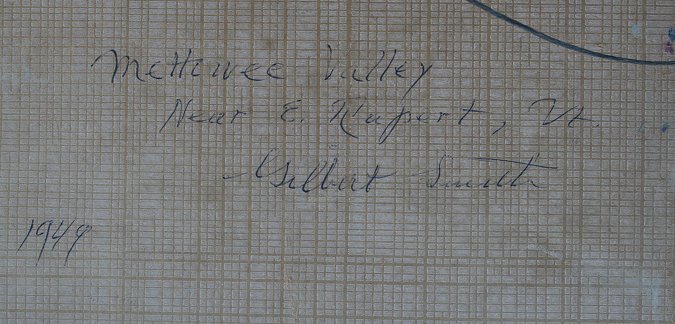 McHewee Valley
Near E. Rupert, Vt.
Gilbert Smith
1949